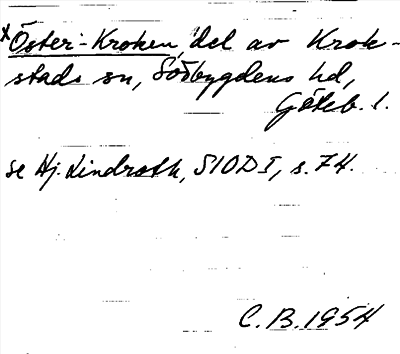 x Öster-Kroken, del av Krok-
stads sn, Sörbygdens hd,
Göteb. l.
se Hj. Lindroth, SIOD I, s. 74.
C. B. 1954